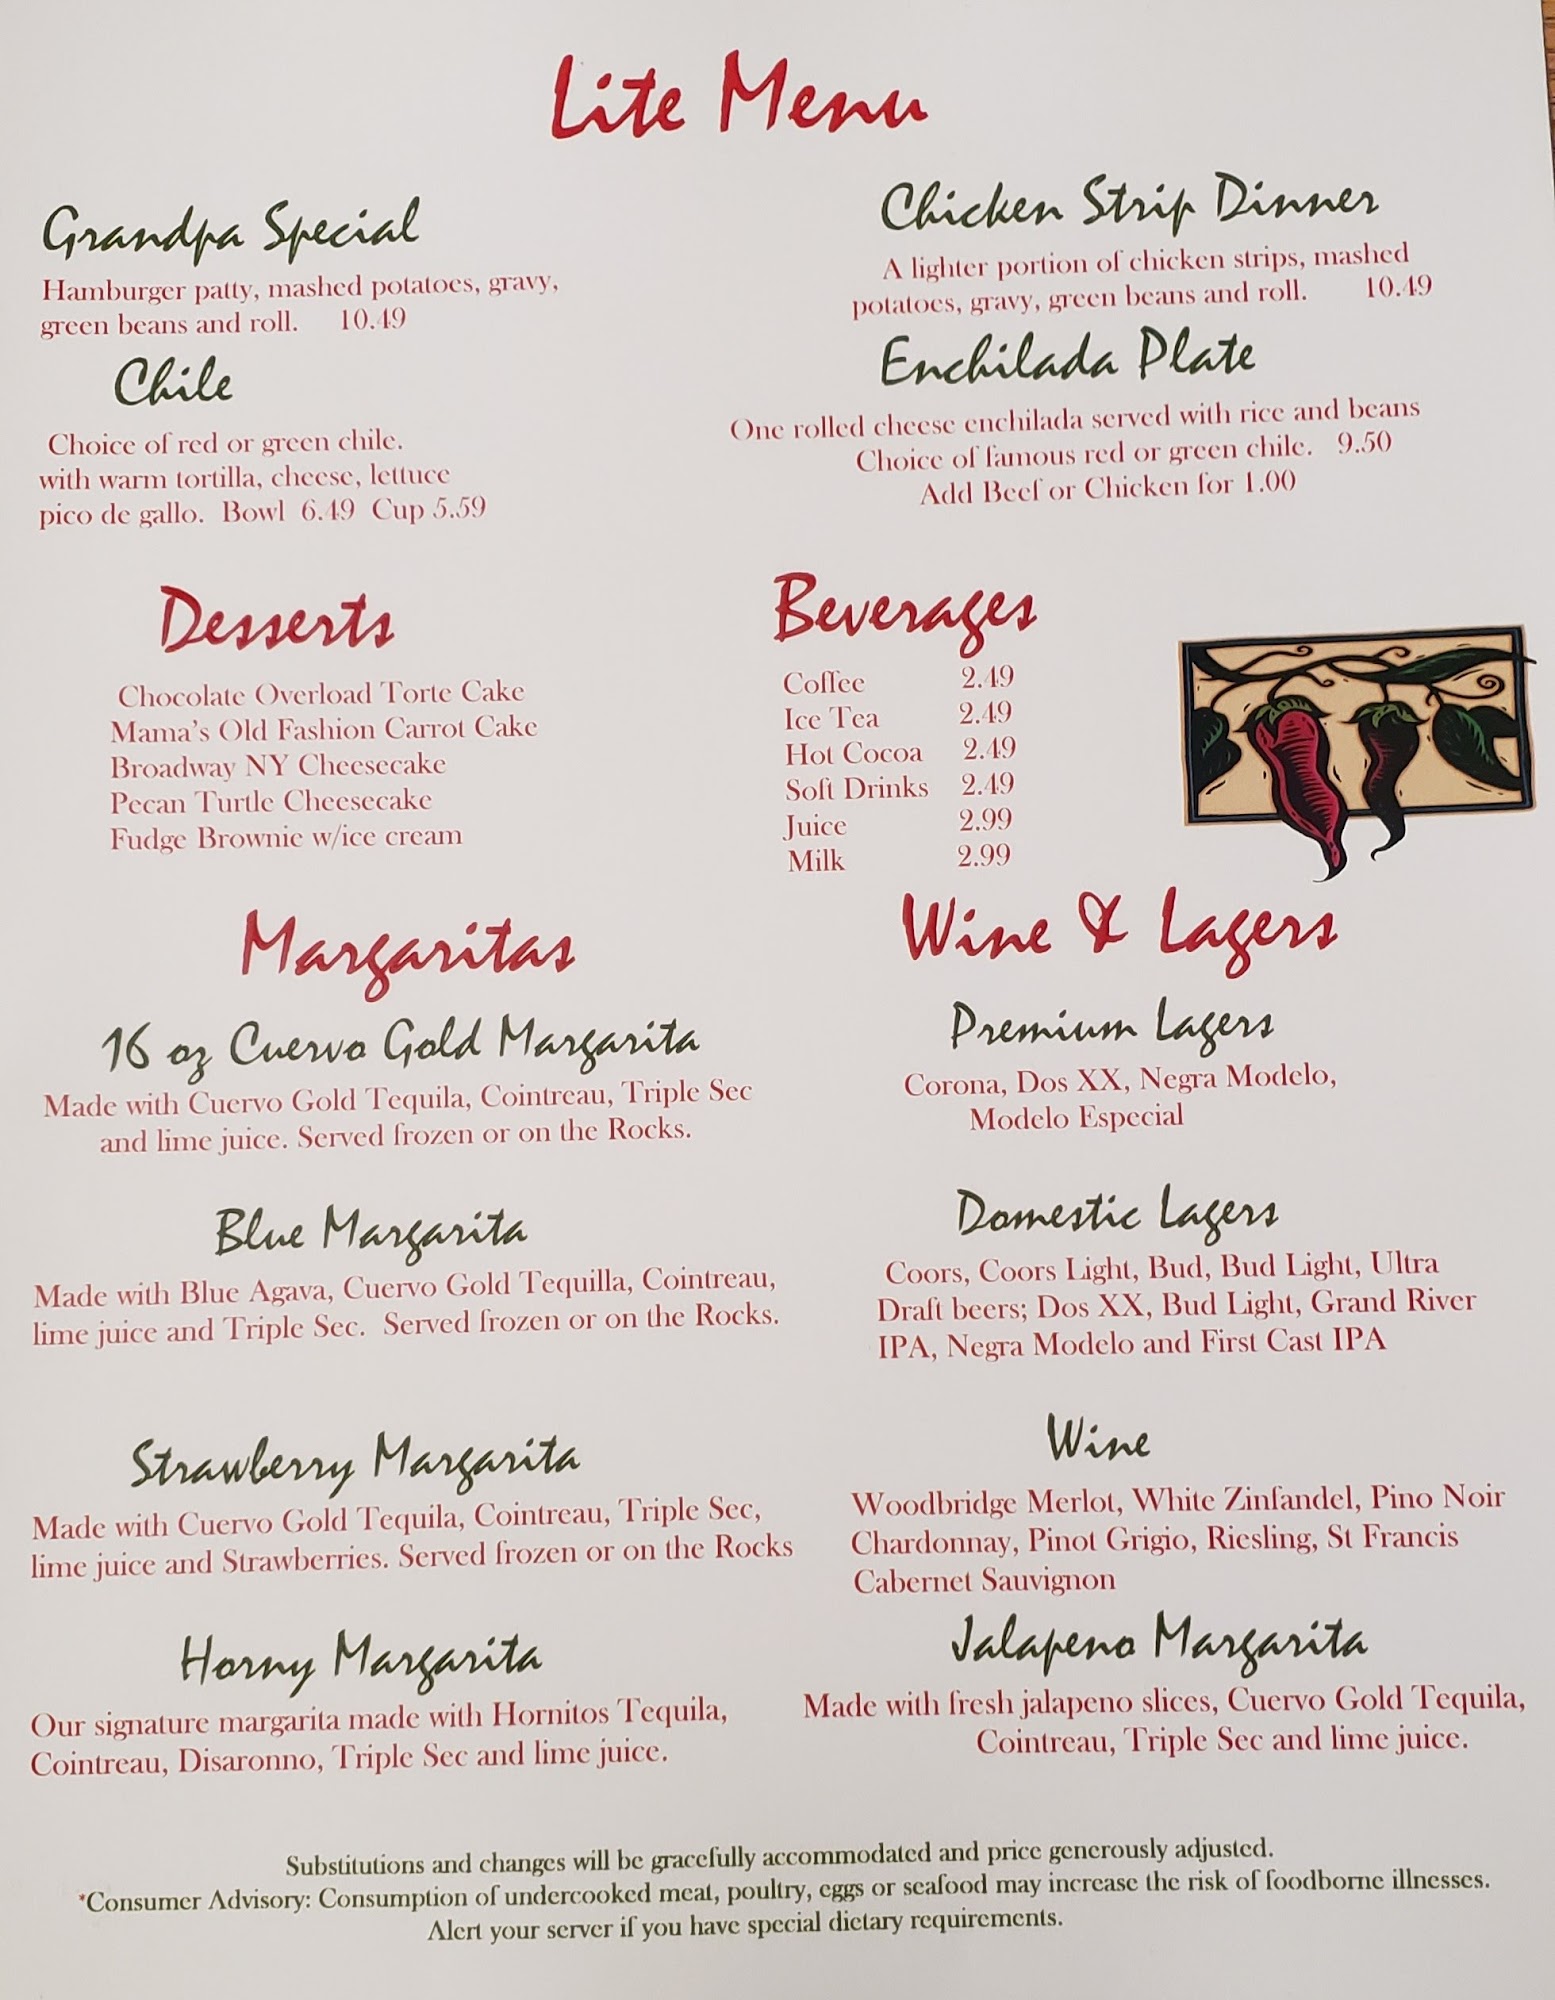 Lite Menu
Grandpa Special
Hamburger patty, mashed potatoes, gravy,
green beans and roll. 10.49
Chile
Choice of red or green chile.
with warm tortilla, cheese, lettuce
pico de gallo. Bowl 6.49 Cup 5.59
Chicken Strip Dinner
A lighter portion of chicken strips, mashed
potatoes, gravy, green beans and roll. 10.49
Enchilada Plate
One rolled cheese enchilada served with rice and beans
Choice of famous red or green chile. 9.50
Add Beef or Chicken for 1.00
Desserts
Chocolate Overload Torte Cake
Mama's Old Fashion Carrot Cake
Broadway NY Cheesecake
Pecan Turtle Cheesecake
Fudge Brownie w/ice cream
Beverages
Coffee 2.49
Ice Tea 2.49
Hot Cocoa 2.49
Soft Drinks 2.49
Juice 2.99
Milk 2.99
Margaritas
16 oz Cuervo Gold Margarita
Made with Cuervo Gold Tequila, Cointreau, Triple Sec
and lime juice. Served frozen or on the Rocks.
Blue Margarita
Made with Blue Agava, Cuervo Gold Tequilla, Cointreau,
lime juice and Triple Sec. Served frozen or on the Rocks.
Strawberry Margarita
Made with Cuervo Gold Tequila, Cointreau, Triple Sec,
lime juice and Strawberries. Served frozen or on the Rocks
Horny Margarita
Our signature margarita made with Hornitos Tequila,
Cointreau, Disaronno, Triple Sec and lime juice.
Wine & Lagers
Premium Lagers
Corona, Dos XX, Negra Modelo,
Modelo Especial
Domestic Lagers
Coors, Coors Light, Bud, Bud Light, Ultra
Draft beers; Dos XX, Bud Light, Grand River
IPA, Negra Modelo and First Cast IPA
Wine
Woodbridge Merlot, White Zinfandel, Pino Noir
Chardonnay, Pinot Grigio, Riesling, St Francis
Cabernet Sauvignon
Jalapeno Margarita
Made with fresh jalapeno slices, Cuervo Gold Tequila,
Cointreau, Triple Sec and lime juice.
Substitutions and changes will be gracefully accommodated and price generously adjusted.
*Consumer Advisory: Consumption of undercooked meat, poultry, eggs or seafood may increase the risk of foodborne illnesses.
Alert your server if you have special dietary requirements.